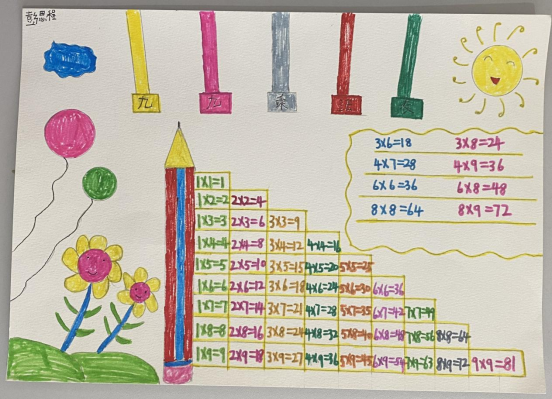 彭思程
九 九 乘 法 表
3×6=18 3×8=24
4×7=28 4×9=36
6×6=36 6×8=48
8×8=64 8×9=72
1×1=1
1×2=2 2×2=4
1×3=3 2×3=6 3×3=9
1×4=4 2×4=8 3×4=12 4×4=16
1×5=5 2×5=10 3×5=15 4×5=20 5×5=25
1×6=6 2×6=12 3×6=18 4×6=24 5×6=30 6×6=36
1×7=7 2×7=14 3×7=21 4×7=28 5×7=35 6×7=42 7×7=49
1×8=8 2×8=16 3×8=24 4×8=32 5×8=40 6×8=48 7×8=56 8×8=64
1×9=9 2×9=18 3×9=27 4×9=36 5×9=45 6×9=54 7×9=63 8×9=72 9×9=81